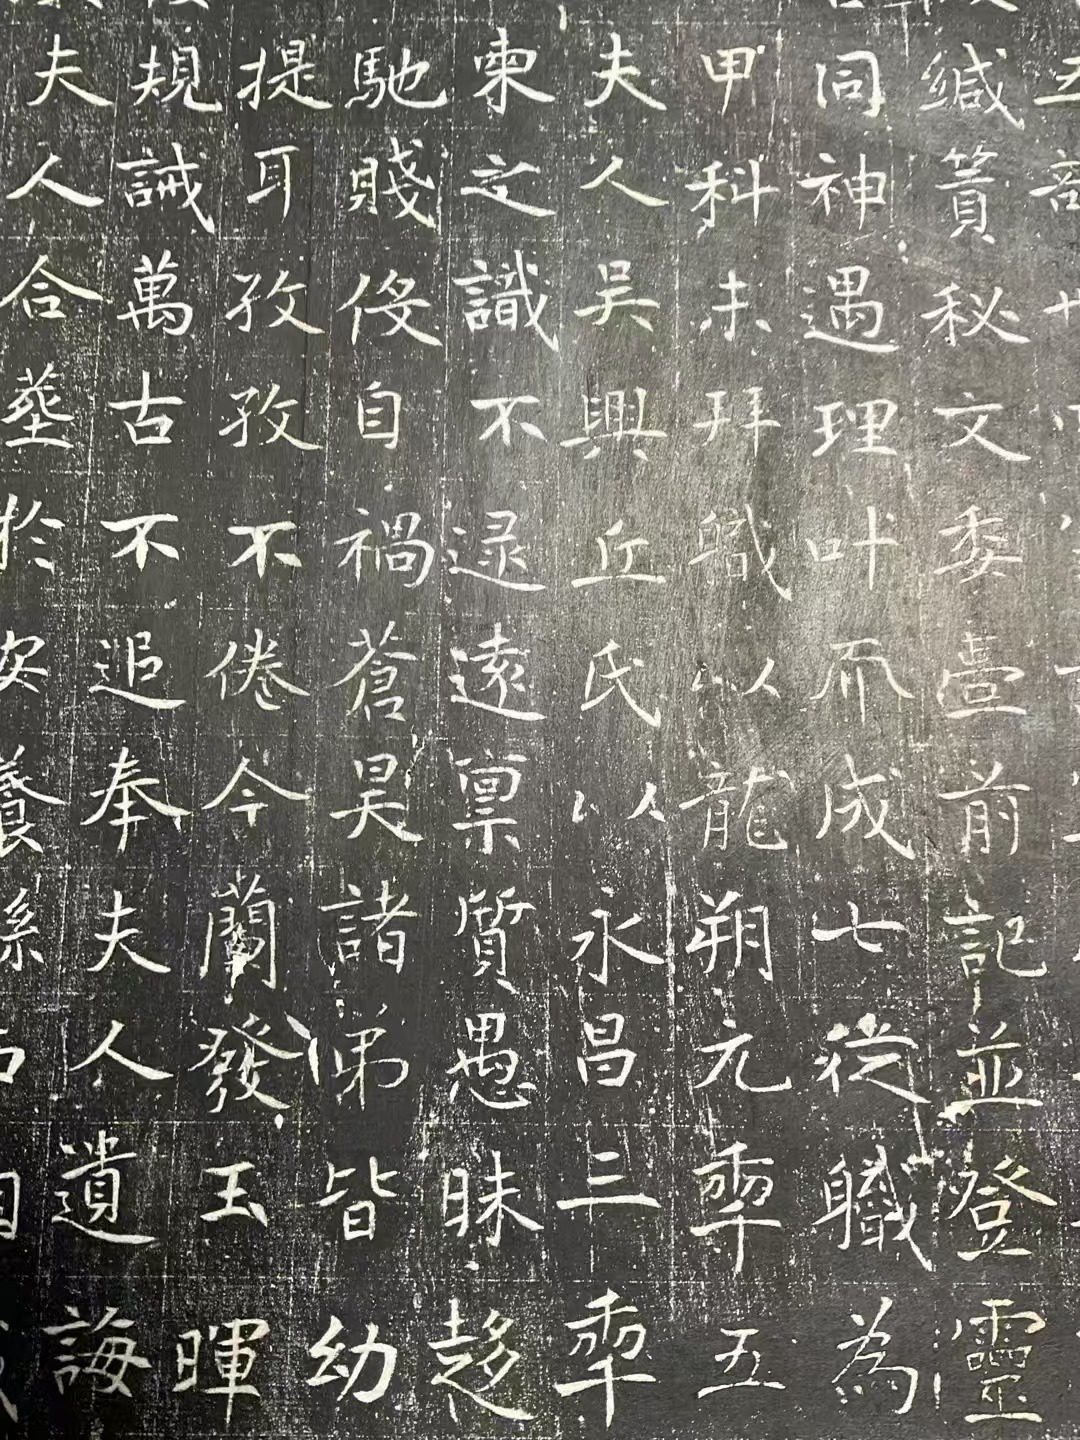 緘篢秘文委臺前記並登靈
同神遇理叶而成七從職為
甲科未拜職以龍朔元年五
夫人吳興丘氏以永昌三年
東之識不逯遠禀質愚昧趍
馳賤伇自禍蒼昊諸弟皆幼
提耳孜孜不倦今蘭發玉暉
規誡萬古不追奉夫人遺誨
夫人合葬於安養縣